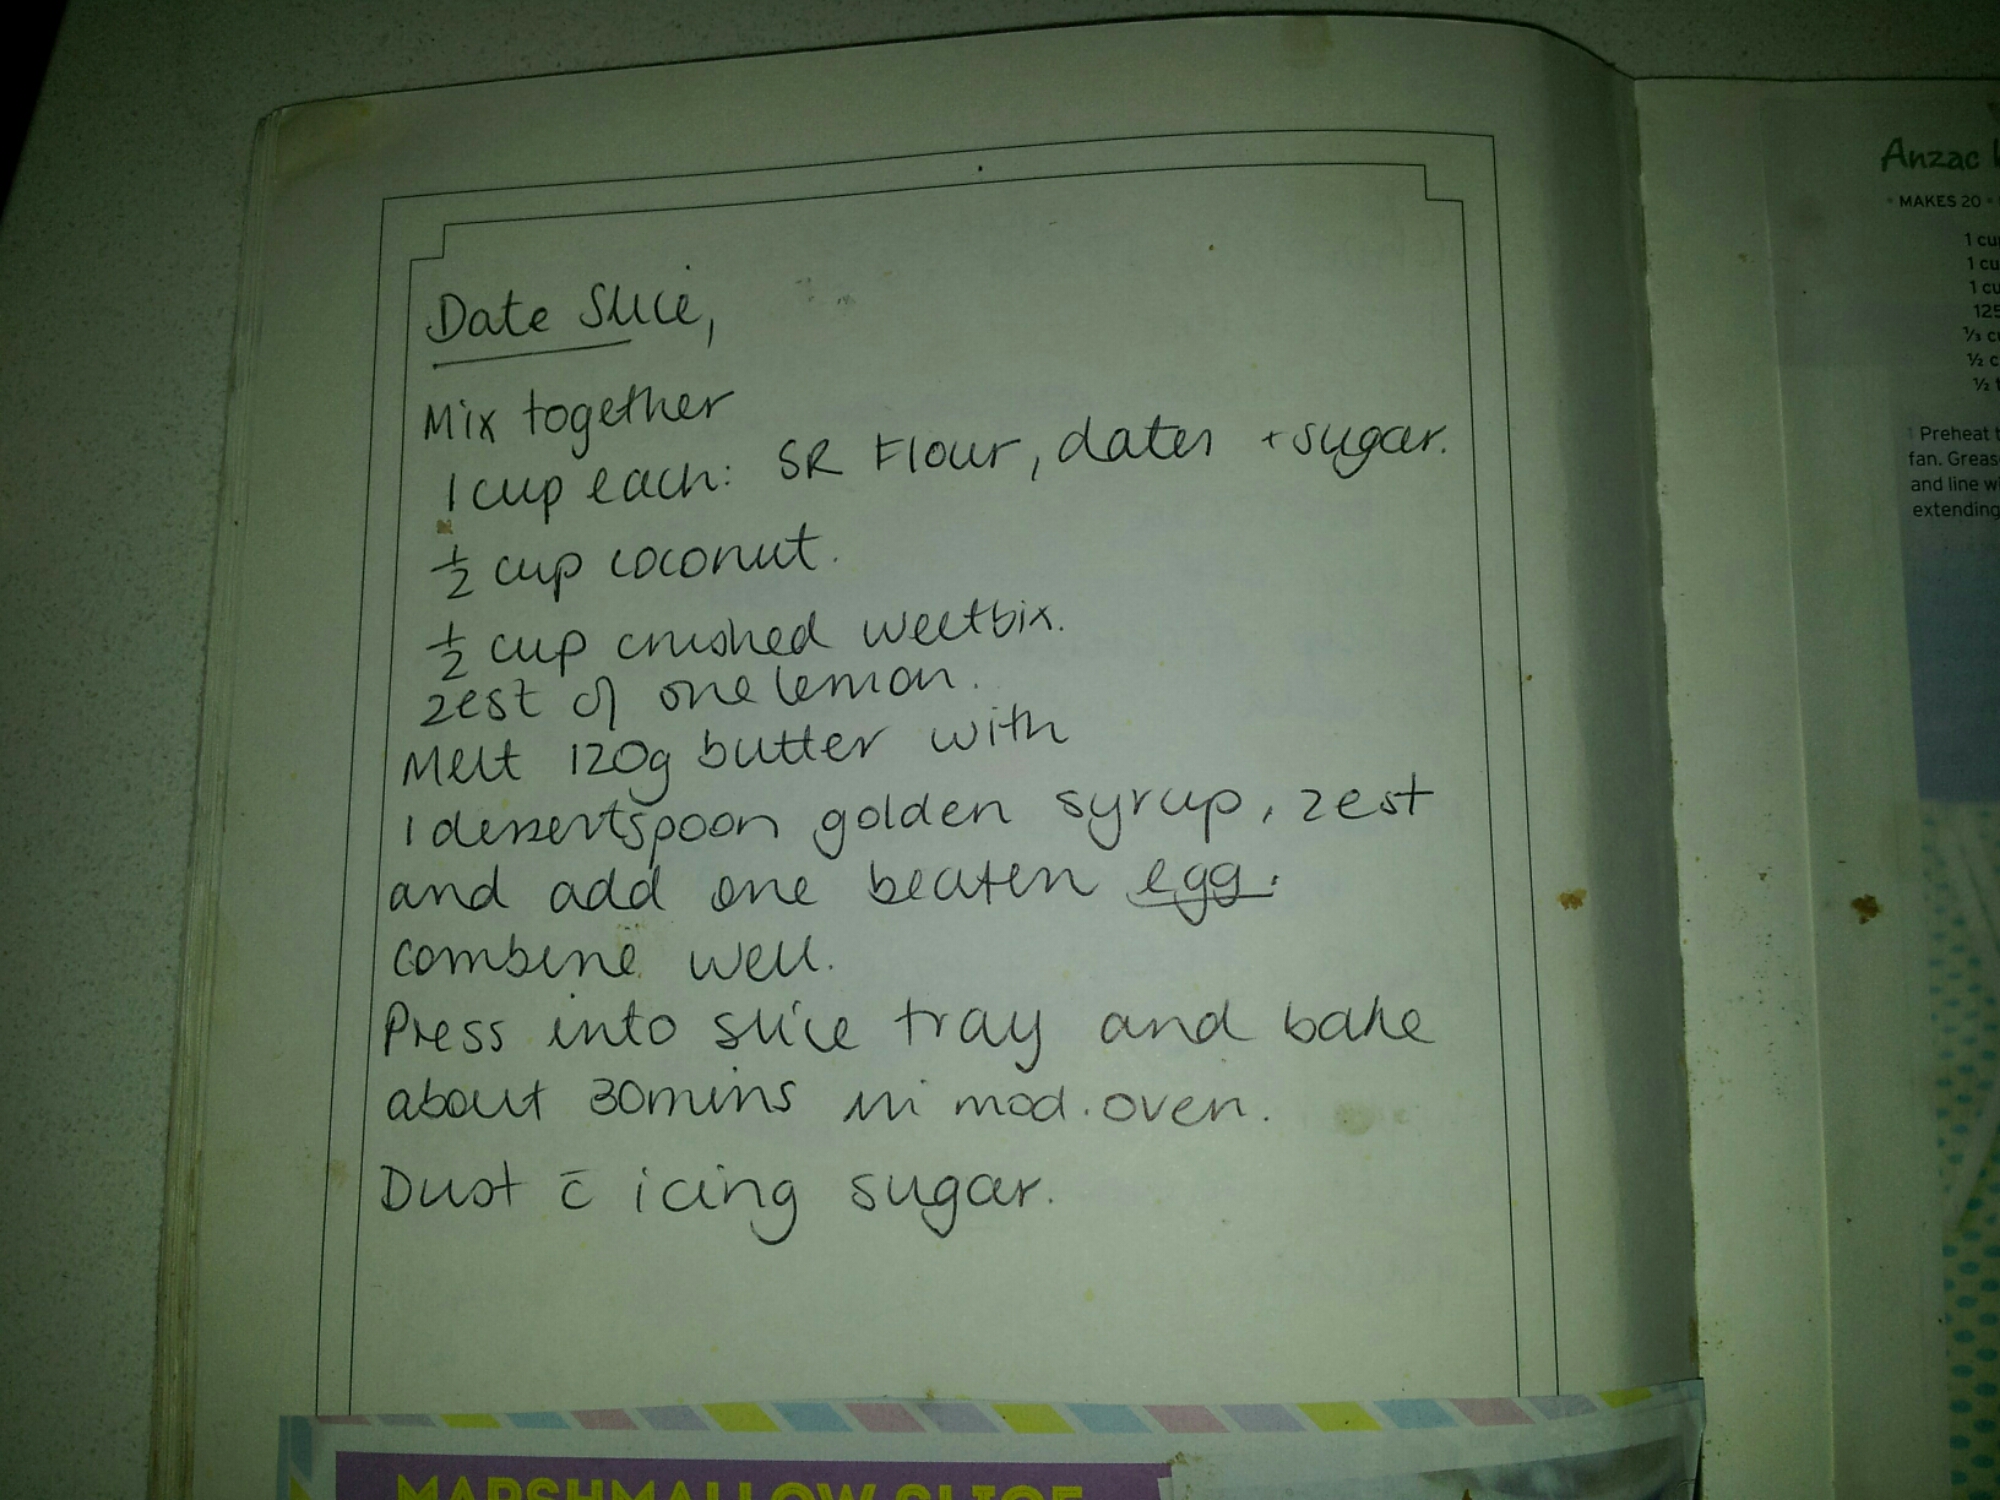 Date Slice,
Mix together
1 cup each: SR Flour, dates + sugar.
½ cup coconut.
½ cup crushed weetbix.
zest of one lemon.
Melt 120g butter with
1 dessertspoon golden syrup, zest
and add one beaten egg.
combine well.
Press into slice tray and bake
about 30mins in mod. oven.
Dust c̄ icing sugar.
MARSHMALLOW SLICE
Anzac
• MAKES 20 •
1 cu
1 cu
1 cu
125
⅓ c
½ c
½ t
1 Preheat t
fan. Greas
and line wi
extending